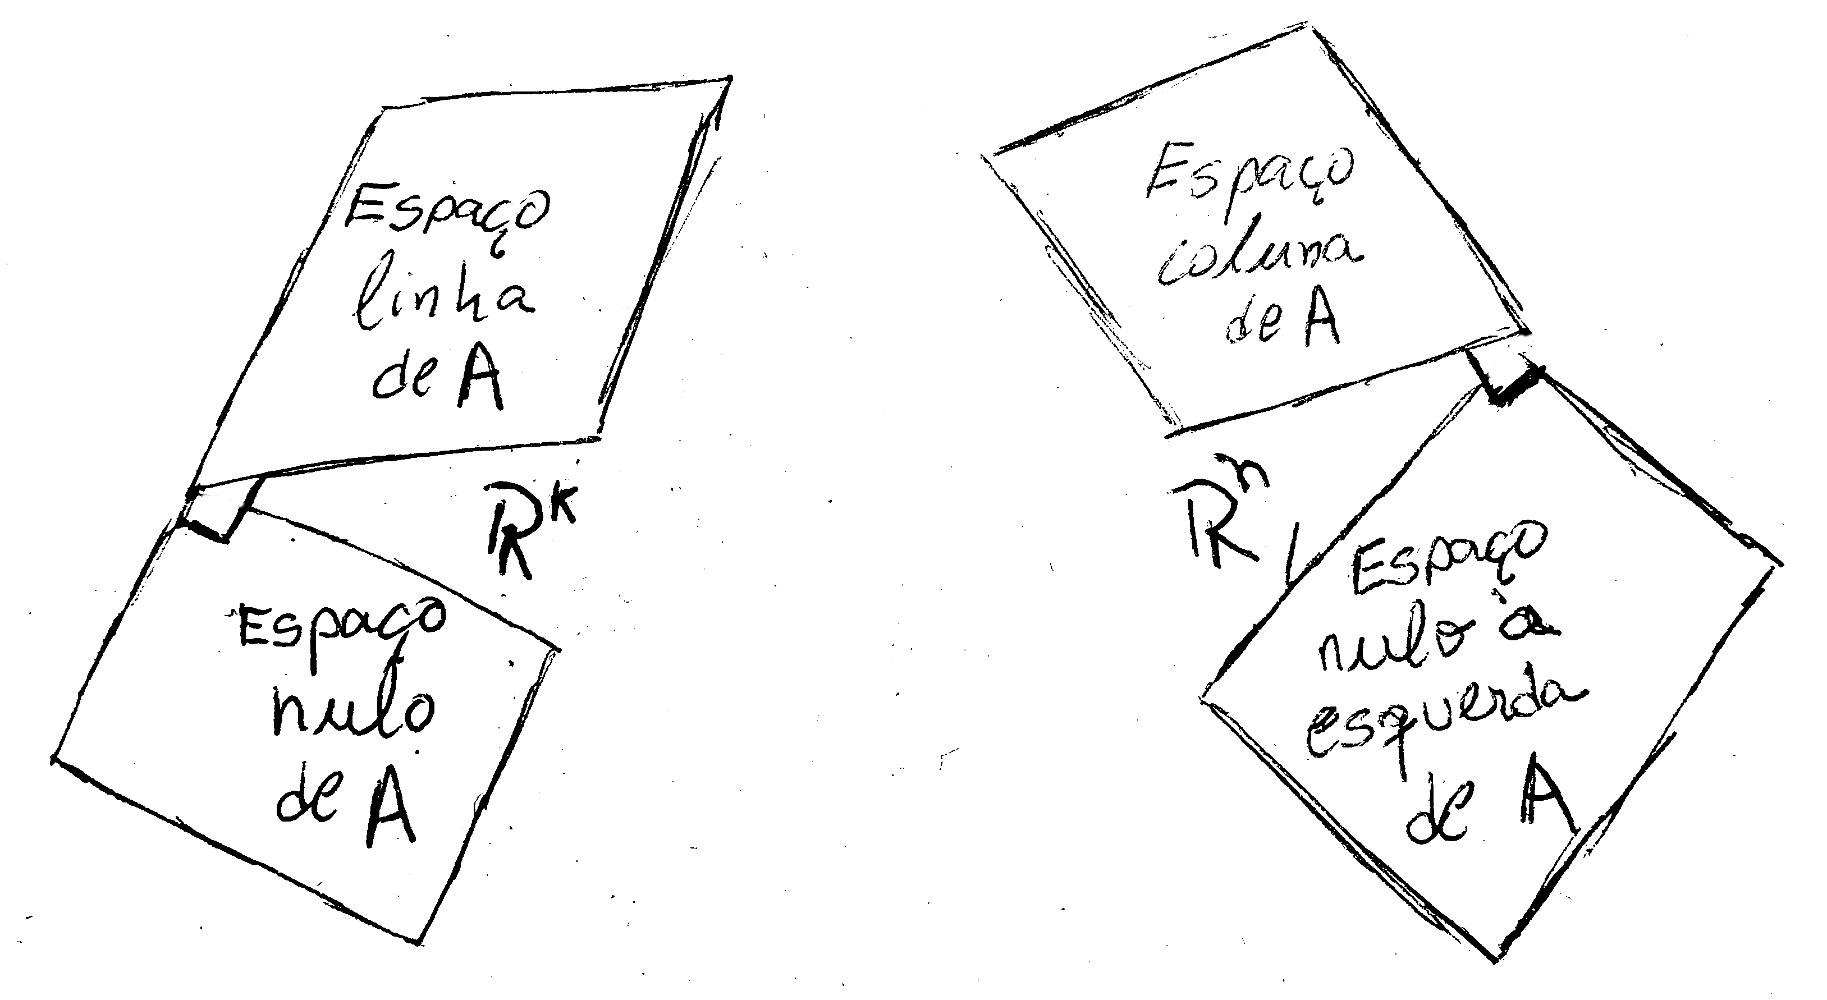 Espaço
linha
de A
R^k
Espaço
nulo
de A
Espaço
coluna
de A
R^n
Espaço
nulo à
esquerda
de A